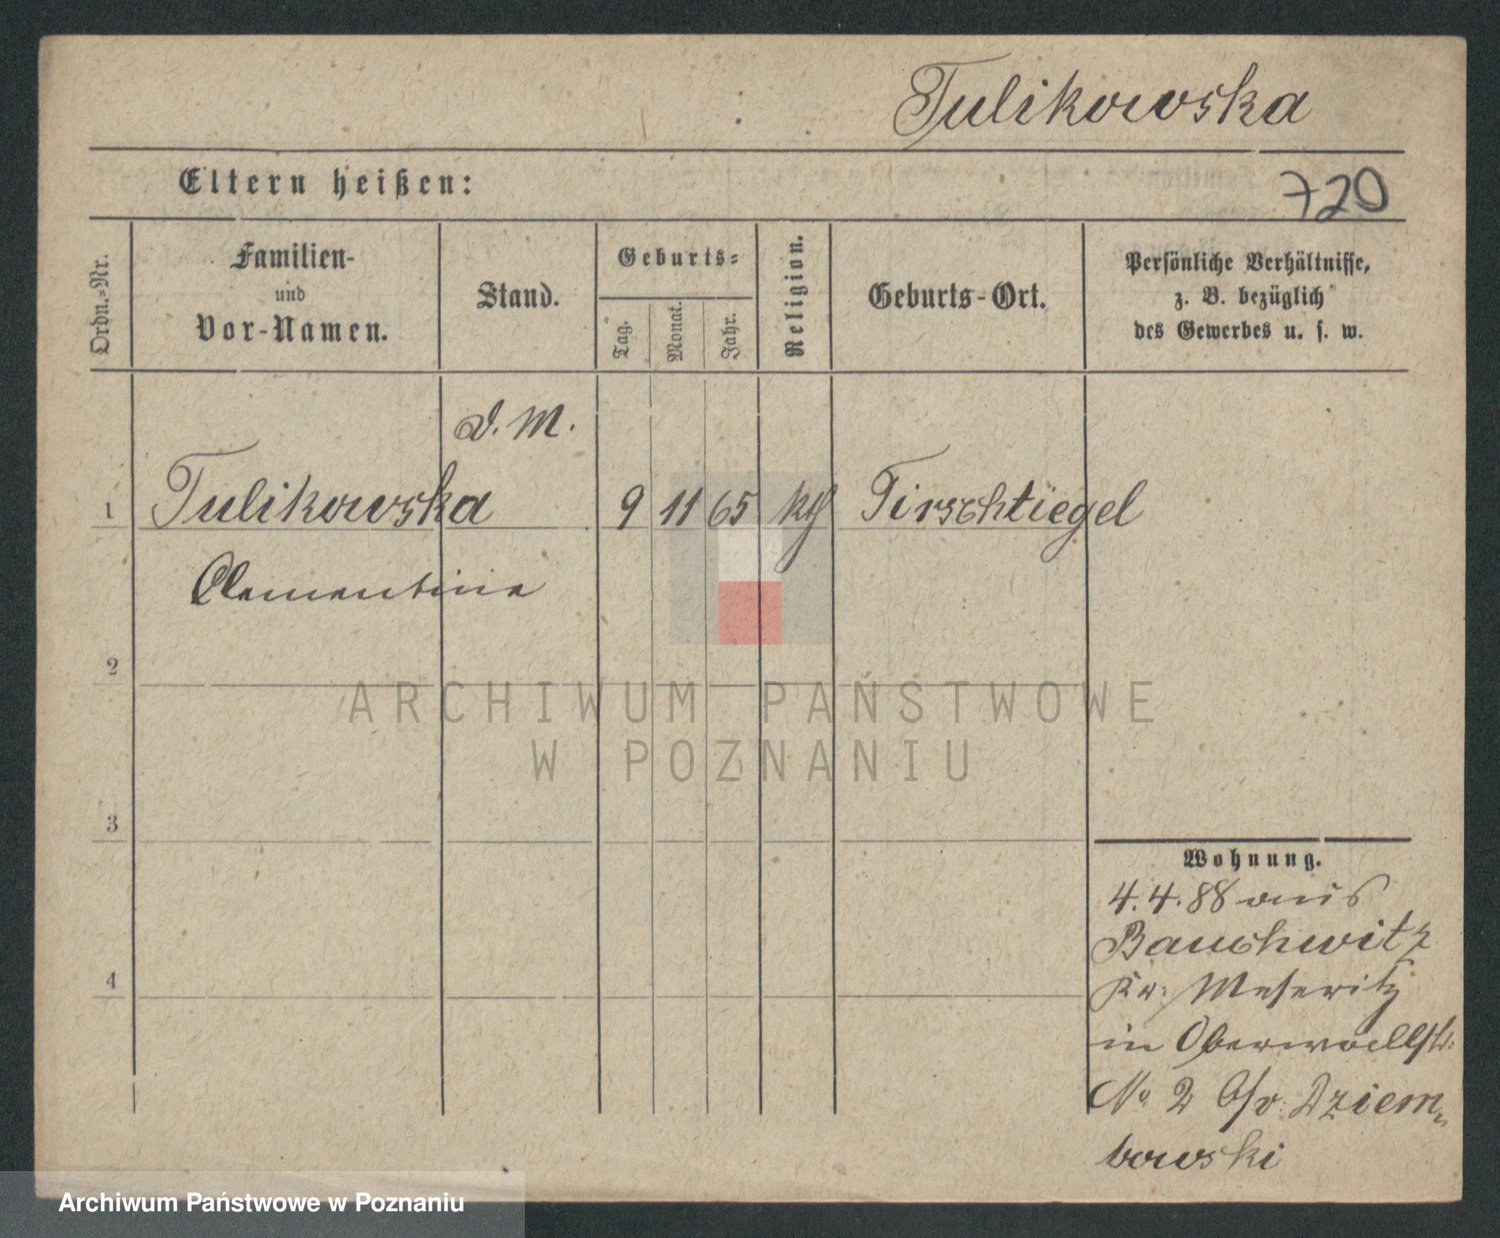 Tulikowska
Eltern heißen:
720
Ordn.-Nr.
Familien-
und
Vor-Namen.
Stand.
Geburts-
Tag.
Monat.
Jahr.
Religion.
Geburts-Ort.
Persönliche Verhältnisse,
z. B. bezüglich
des Gewerbes u. s. w.
d. M.
1 Tulikowska 9 11 65 kth Tirschtiegel
Clementine
2
3
4
Wohnung.
4.4.88 aus
Bauchwitz
Kr: Meseritz
in Oberwallstr:
No 2 Dziem-
bowski
ARCHIWUM PAŃSTWOWE
W POZNANIU
Archiwum Państwowe w Poznaniu